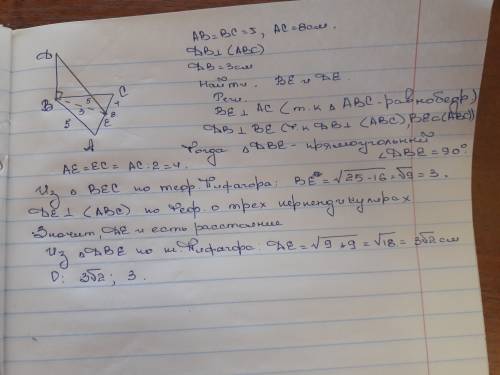 AB=BC=5, AC=8см.
DB⊥(ABC)
DB=3см
Найти: BE и DE.
Реш:
BE⊥AC (т.к Δ ABC-равнобедр)
DB⊥BE (т.к DB⊥(ABC), BE⊂(ABC))
Тогда ΔDBE-прямоугольный
∠DBE=90°
D
B
C
5
4
3
E
5
A
AE=EC=AC:2=4.
Из ΔBEC по теор. Пифагора: BE=√25-16=√9=3.
DE⊥(ABC) по теор. о трех перпендикулярах
Значит, DE и есть расстояние
Из ΔDBE по т. Пифагора: DE=√9+9=√18=3√2см
О: 3√2; 3.